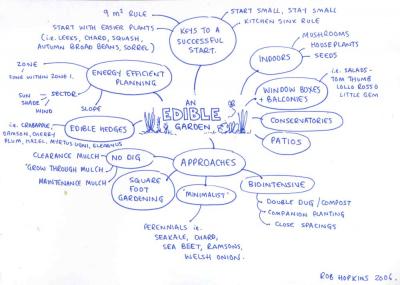 9 m² RULE
START WITH EASIER PLANTS
(i.e. LEEKS, CHARD, SQUASH,
AUTUMN BROAD BEANS, SORREL)
KEYS TO A
SUCCESSFUL
START.
START SMALL, STAY SMALL
KITCHEN SINK RULE
ZONE
ZONE WITHIN ZONE 1.
SUN
SHADE
WIND
SECTOR
SLOPE
ENERGY EFFICIENT
PLANNING
INDOORS
MUSHROOMS
HOUSEPLANTS
SEEDS
WINDOW BOXES
+ BALCONIES
i.e. SALADS-
TOM THUMB
LOLLO ROSSO
LITTLE GEM
AN
EDIBLE
GARDEN
OR
CONSERVATORIES
PATIOS
i.e. CRABAPPLE,
DAMSON, CHERRY
PLUM, HAZEL, MYRTUS UGNI, ELEAGNUS
EDIBLE HEDGES
CLEARANCE MULCH
'GROW THROUGH' MULCH
MAINTENANCE MULCH
NO DIG
APPROACHES
SQUARE
FOOT
GARDENING
'MINIMALIST'
BIOINTENSIVE
DOUBLE DUG / COMPOST
COMPANION PLANTING
CLOSE SPACINGS
PERENNIALS i.e.
SEAKALE, CHARD,
SEA BEET, RAMSONS,
WELSH ONION.
ROB HOPKINS 2006.